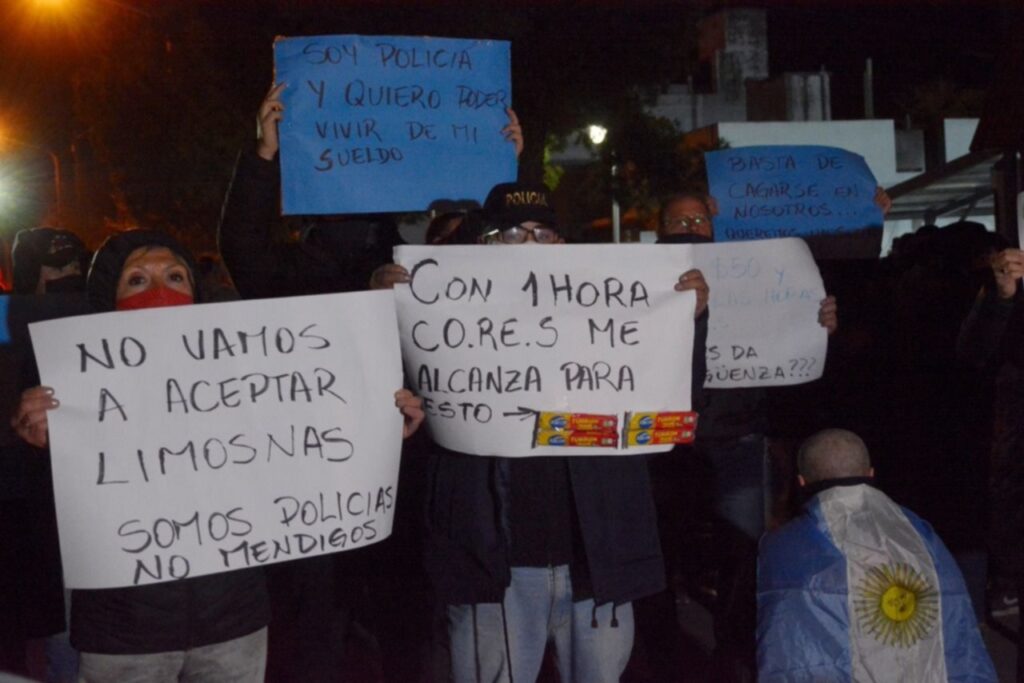 SOY POLICIA
Y QUIERO PODER
VIVIR DE MI
SUELDO
BASTA DE
CAGARSE EN
NOSOTROS...
QUEREMOS
POLICIA
CON 1 HORA
CO.RE.S ME
ALCANZA PARA
ESTO →
$50 y
LAS HORAS
...
ES DA
GÜENZA???
NO VAMOS
A ACEPTAR
LIMOSNAS
SOMOS POLICIAS
NO MENDIGOS